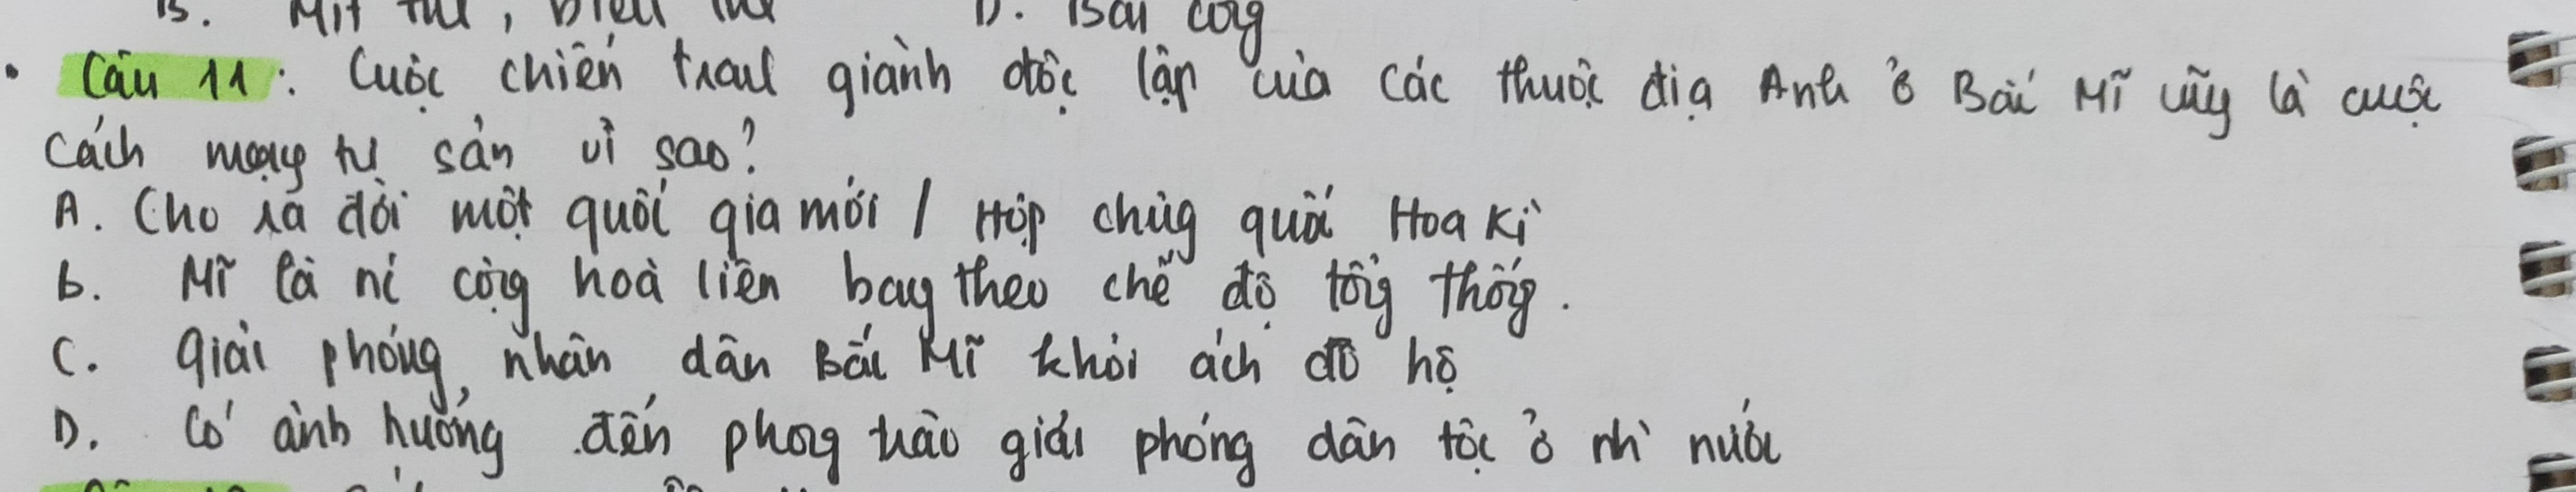 B. Mít tinh, biểu tình D. Bãi công
• Câu 11: Cuộc chiến tranh giành độc lập của các thuộc địa Anh ở Bắc Mĩ cũg là cuộc
cách mạng tư sản vì sao?
A. Cho ra đời một quốc gia mới / Hợp chúg quốc Hoa Kì
b. Mĩ là nc cộng hoà liên bag theo chế độ tổg thốg.
C. giải phóng nhân dân Bắc Mĩ khỏi ách đô hộ
D. Có ảnh hưởng đến phog trào giải phóng dân tộc ở nhì nước